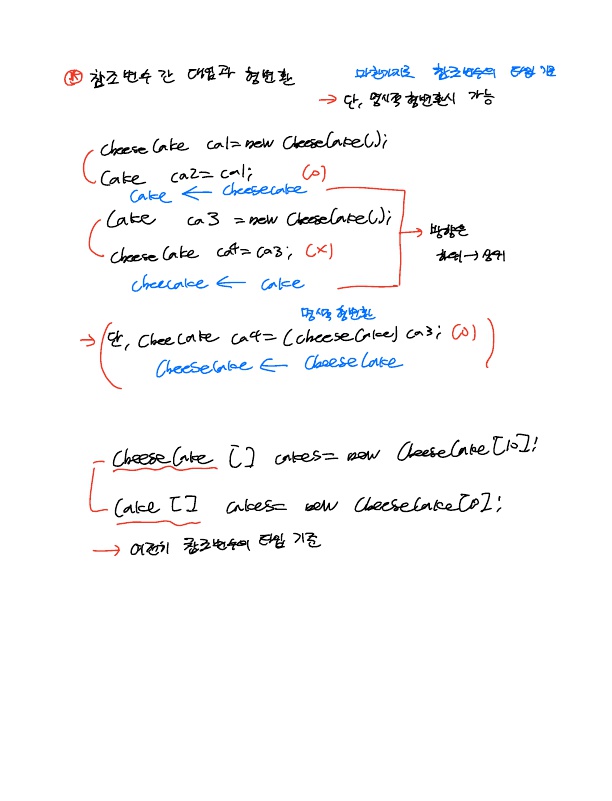 ※ 참조변수 간 대입과 형변환
마찬가지로 참조변수의 타입 기준
→ 단, 명시적 형변환시 가능
CheeseCake ca1 = new CheeseCake();
Cake ca2 = ca1; (o)
Cake ← CheeseCake
Cake ca3 = new CheeseCake();
CheeseCake ca4 = ca3; (x)
→ 방향은
하위 → 상위
cheecake ← cake
명시적 형변환
→ (단, CheeCake ca4 = (CheeseCake) ca3; (o))
CheeseCake ← CheeseCake
- CheeseCake [] cakes = new CheeseCake[10];
Cake [] cakes = new CheeseCake[10];
→ 여전히 참조변수의 타입 기준